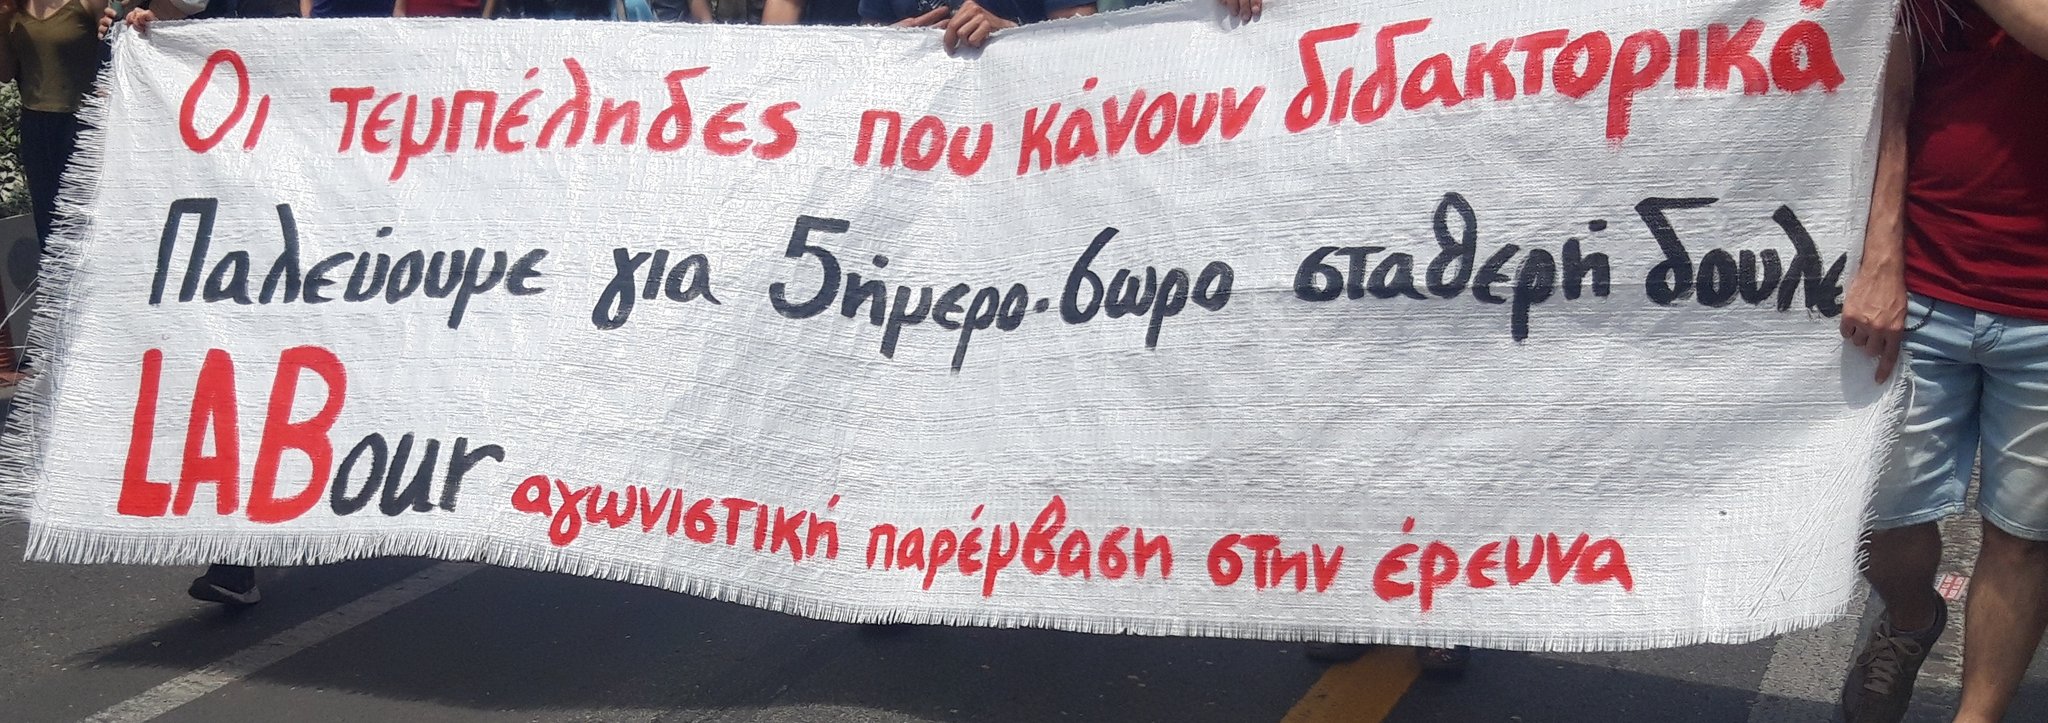 Οι τεμπέληδες που κάνουν διδακτορικά
Παλεύουμε για 5ήμερο-6ωρο σταθερή δουλε
LABour αγωνιστική παρέμβαση στην έρευνα